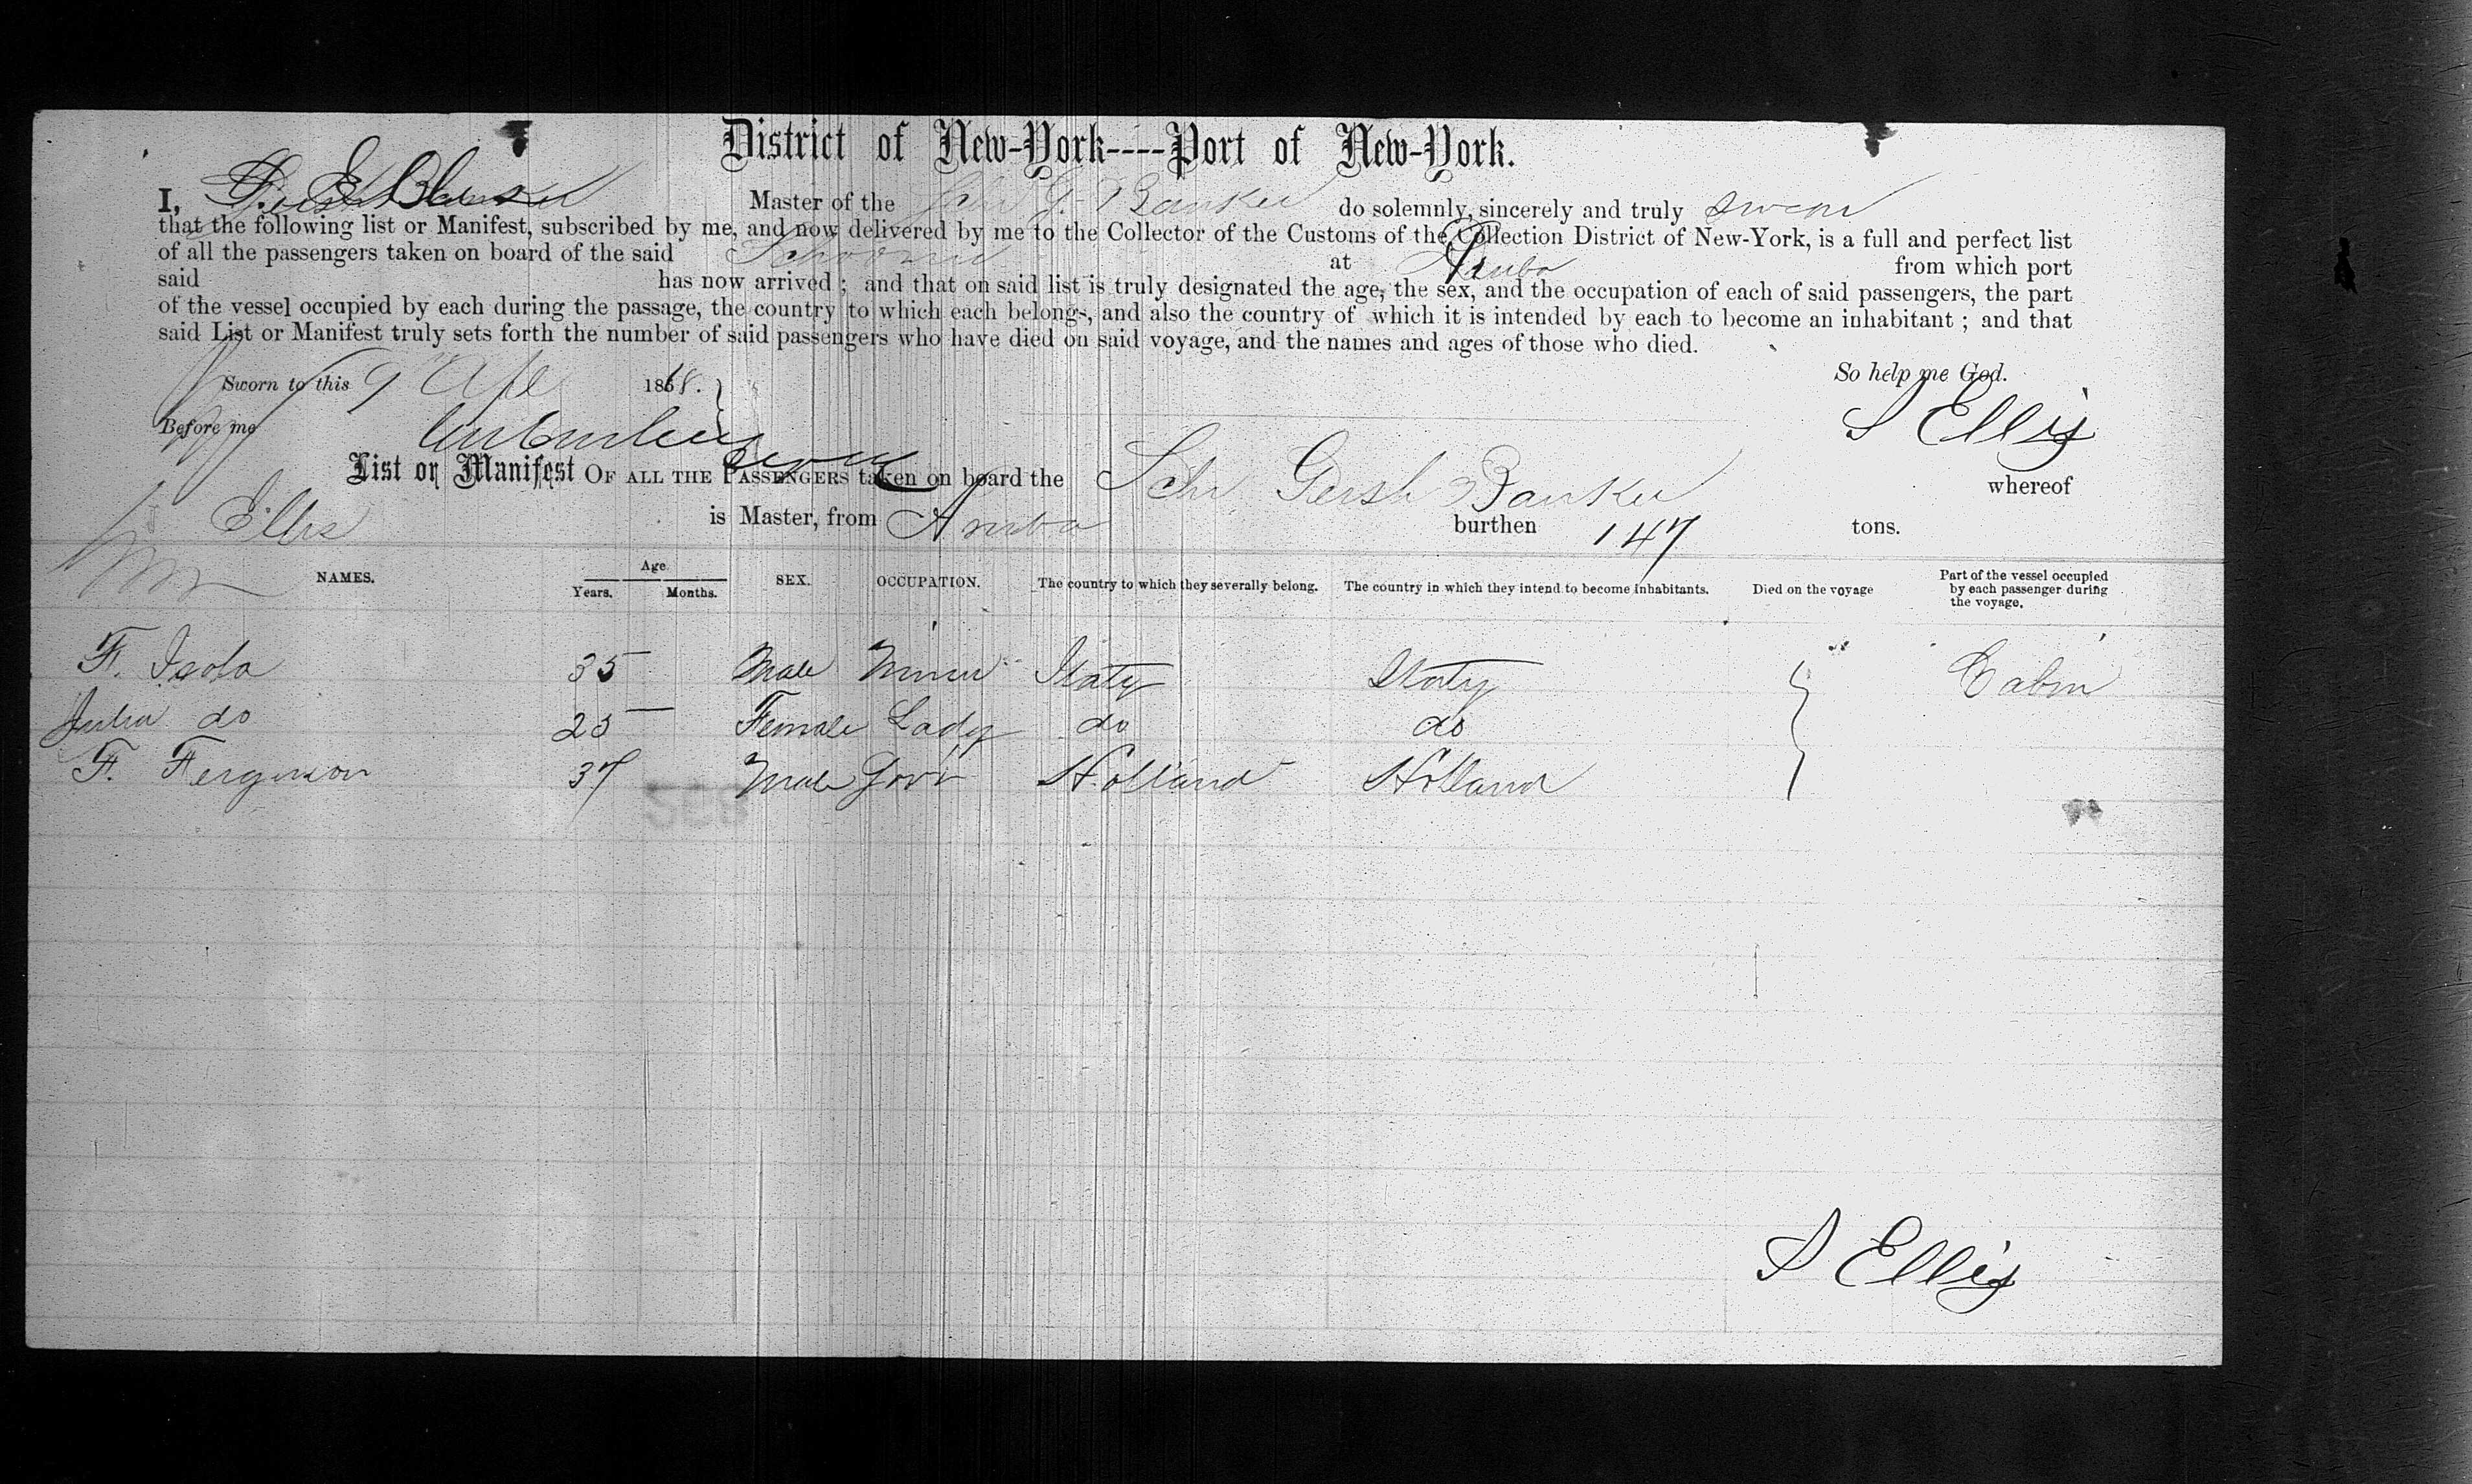 District of New-York----Port of New-York.
I, Master of the Schr G. Banker do solemnly, sincerely and truly swear
that the following list or Manifest, subscribed by me, and now delivered by me to the Collector of the Customs of the Collection District of New-York, is a full and perfect list
of all the passengers taken on board of the said Schooner at Aruba from which port
said has now arrived ; and that on said list is truly designated the age, the sex, and the occupation of each of said passengers, the part
of the vessel occupied by each during the passage, the country to which each belongs, and also the country of which it is intended by each to become an inhabitant ; and that
said List or Manifest truly sets forth the number of said passengers who have died on said voyage, and the names and ages of those who died.
So help me God.
Sworn to this 9 Apl 1868.
S Ellis
Before me
List or Manifest OF ALL THE PASSENGERS taken on board the Schr Gersh Banker whereof
Ellis is Master, from Aruba burthen 147 tons.
NAMES. Age Years. Months. SEX. OCCUPATION. The country to which they severally belong. The country in which they intend to become inhabitants. Died on the voyage Part of the vessel occupied by each passenger during the voyage.
F. Isola 35 Male Miner Italy Italy Cabin
Julia do 25 Female Lady do do
F. Ferguson 37 Male Govr Holland Holland
S Ellis